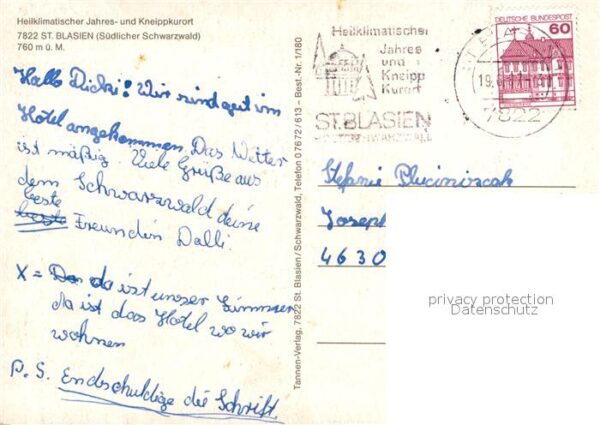 Heilklimatischer Jahres- und Kneippkurort
7822 ST. BLASIEN (Südlicher Schwarzwald)
760 m ü. M.
Hallo Dicki! Wir sind gut im
Hotel angekommen. Das Wetter
ist mäßig. Viele Grüße aus
dem Schwarzwald deine
beste
Freundin Dalli.
X = Da da ist unser Zimmer
da ist das Hotel wo wir
wohnen
P.S. Endschuldige die Schrift
Tannen-Verlag, 7822 St. Blasien/Schwarzwald, Telefon 07672/613 – Best.-Nr. 1/180
Heilklimatischer
Jahres
und
Kneipp
Kurort
ST. BLASIEN
SCHWARZWALD
7822
DEUTSCHE BUNDESPOST
60
Stefanie
Joseph
4630
privacy protection
Datenschutz